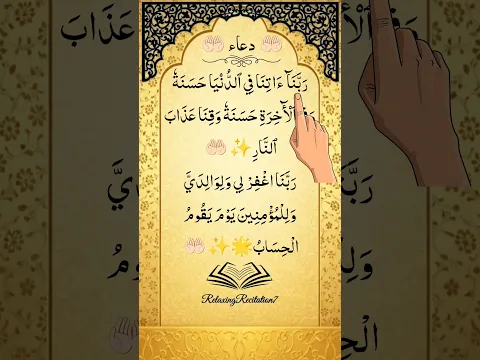 🤲🏻 دعاء 🤲🏻
رَبَّنَآ ءَاتِنَا فِي ٱلدُّنْيَا حَسَنَةٗ
ٱلْأٓخِرَةِ حَسَنَةٗ وَقِنَا عَذَابَ
ٱلنَّارِ ✨ 🤲🏻
رَبَّنَا اغْفِرْ لِي وَلِوَالِدَيَّ
وَلِلْمُؤْمِنِينَ يَوْمَ يَقُومُ
الْحِسَابُ 🌟 ✨ 🤲🏻
RelaxingRecitation7